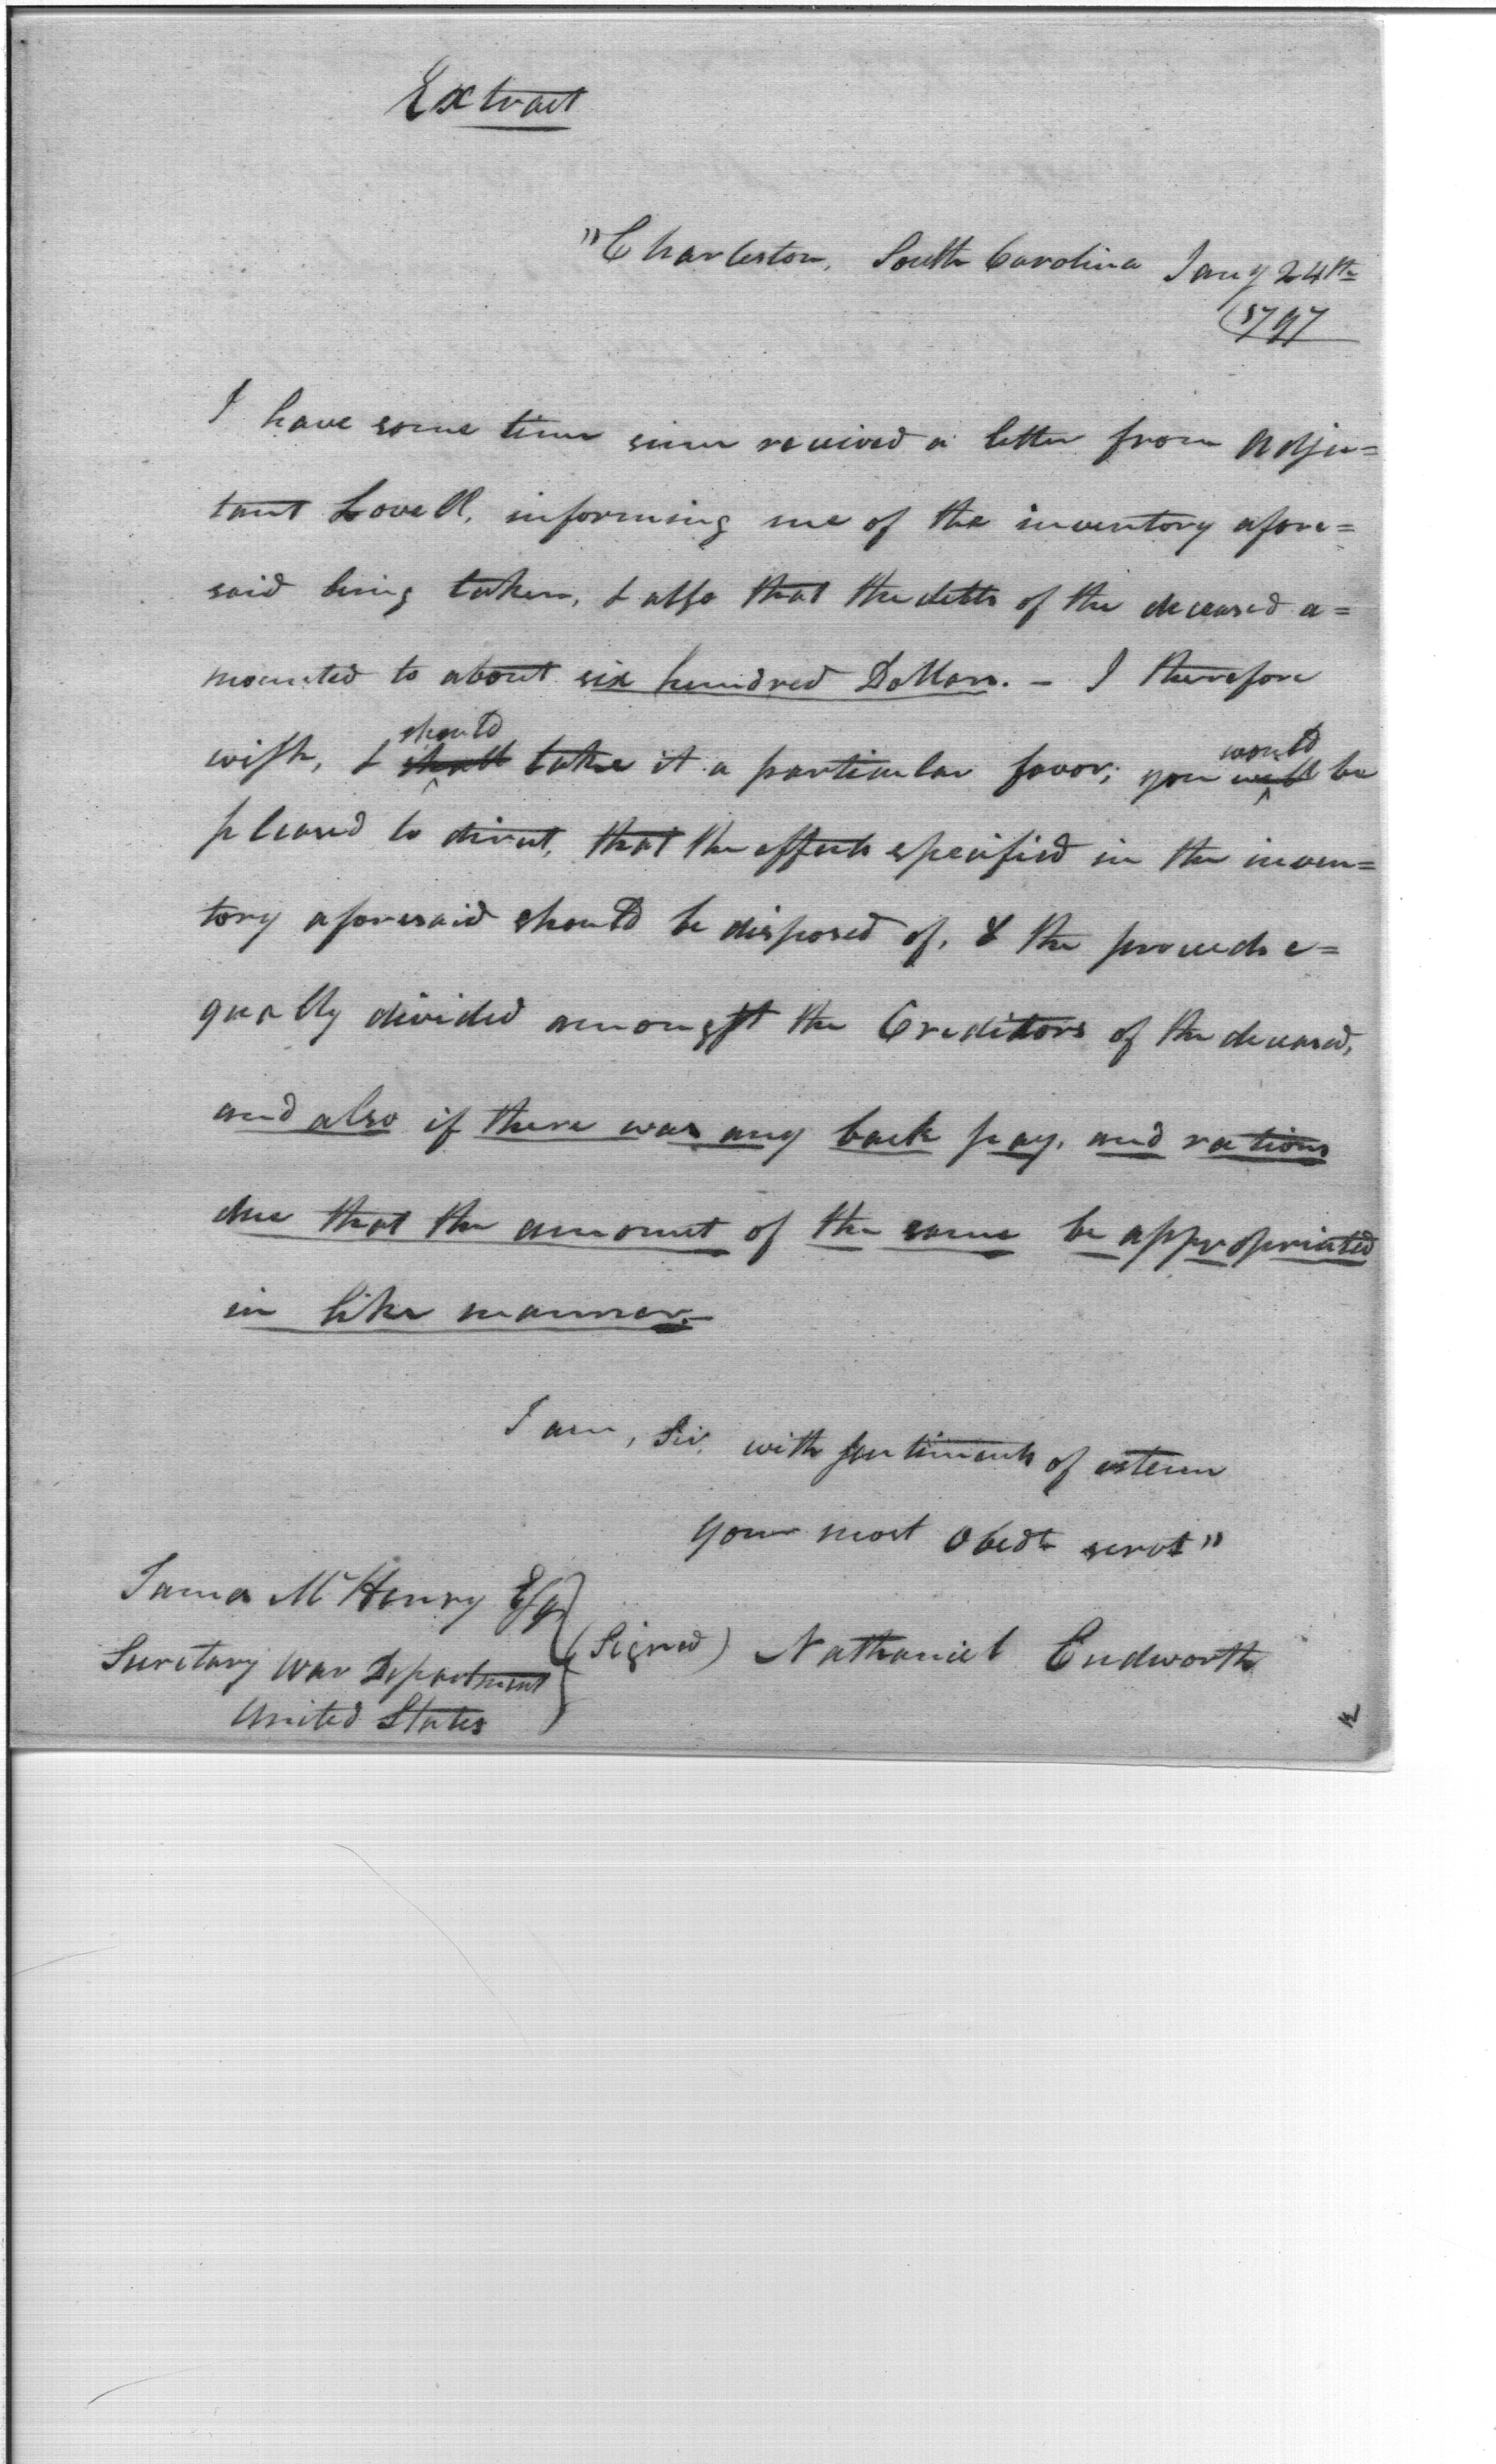 Extract
"Charleston, South Carolina Jany 24th
1797
I have some time since received a letter from Adju=
tant Lovell, informing me of the inventory afore=
said being taken, & also that the debts of the deceased a=
mounted to about six hundred Dollars. - I therefore
wish, & shall should take it a particular favor; you will would be
pleased to direct, that the effects specified in the inven=
tory aforesaid should be disposed of, & the proceeds e=
qually divided amongst the Creditors of the deceased,
and also if there was any back pay, and rations
due that the amount of the same be appropriated
in like manner.-
I am, Sir, with sentiments of esteem
your most Obedt servt"
James McHenry Esqr
Secretary War Department
United States
(Signed) Nathaniel Cudworth